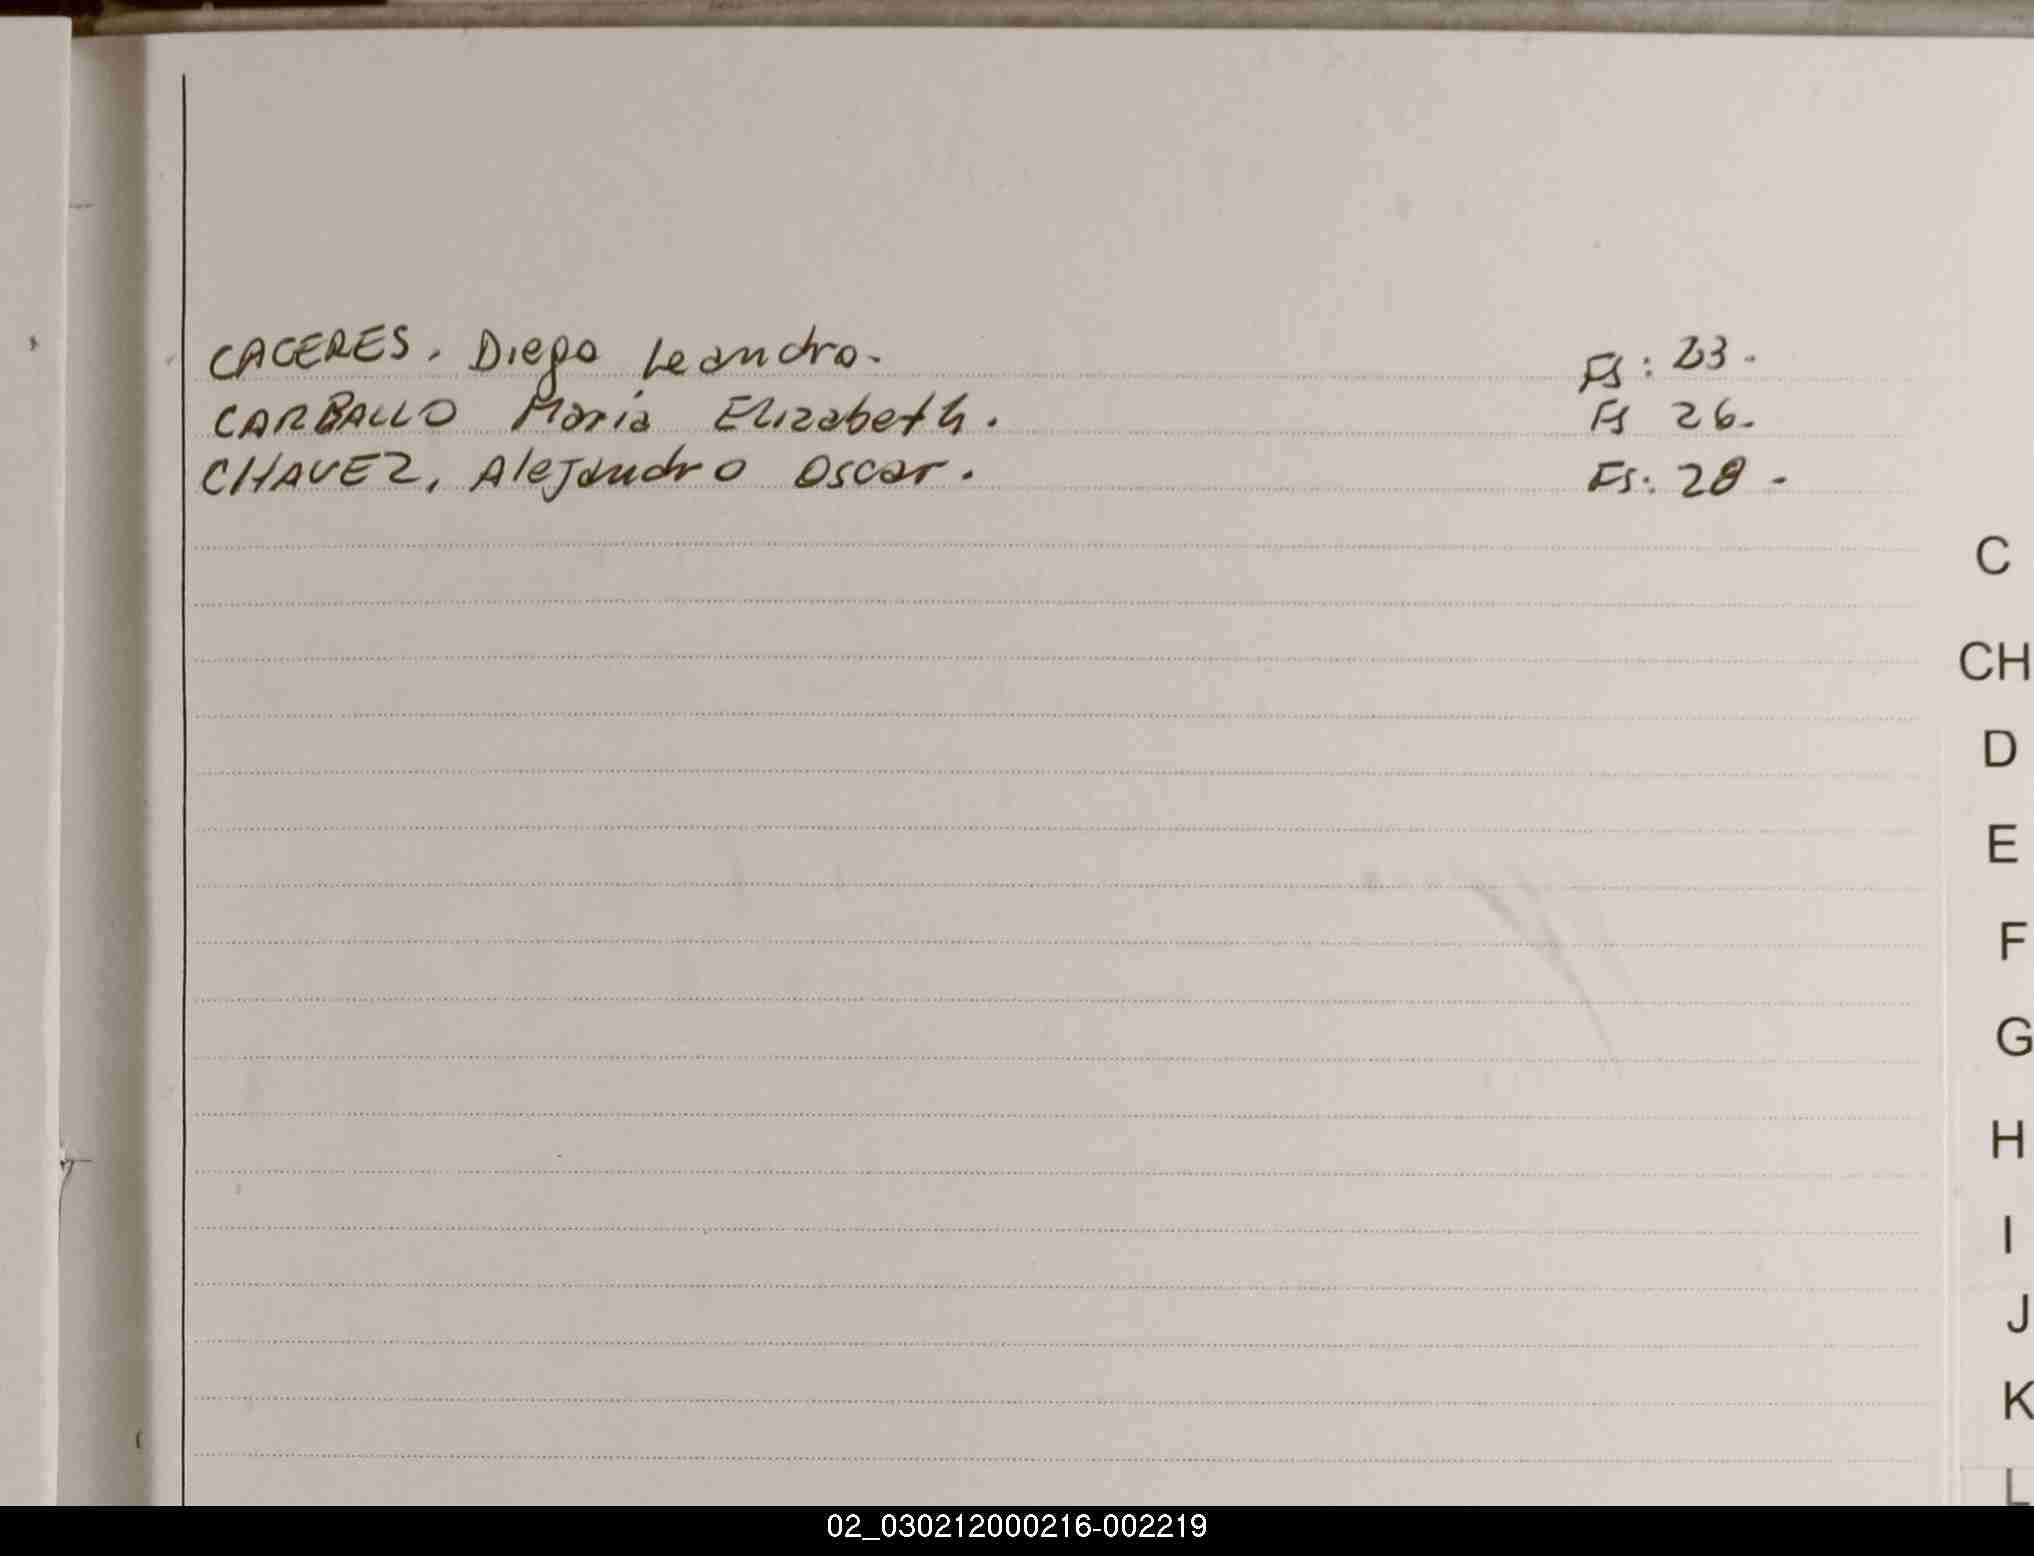 CACERES. Diego Leandro. Fs: 23.
CARBALLO Maria Elizabeth. Fs 26.
CHAVEZ, Alejandro Oscar. Fs: 28.
C
CH
D
E
F
G
H
I
J
K
L
02_030212000216-002219